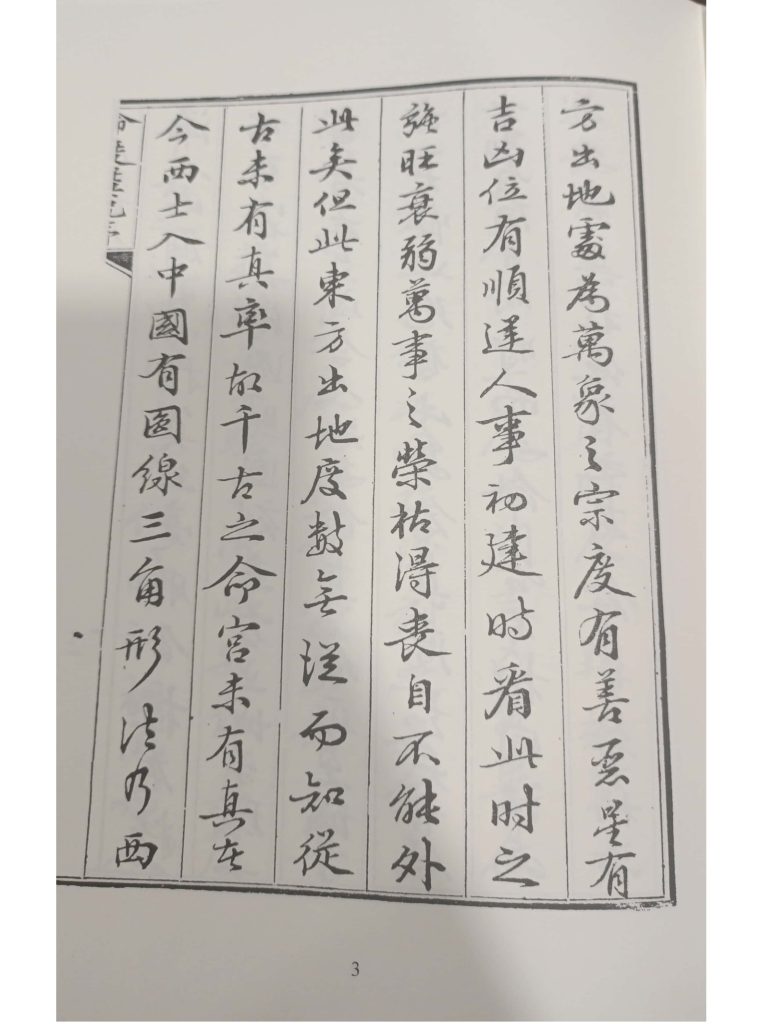 方出地處為萬象之宗度有善惡星有
吉凶位有順逆人事初建時看此時之
強旺衰弱萬事之榮枯得喪自不能外
此矣但此東方出地度數無從而知從
古未有真率故千古之命宮未有真在
今西士入中國有圓線三角形法乃西
3